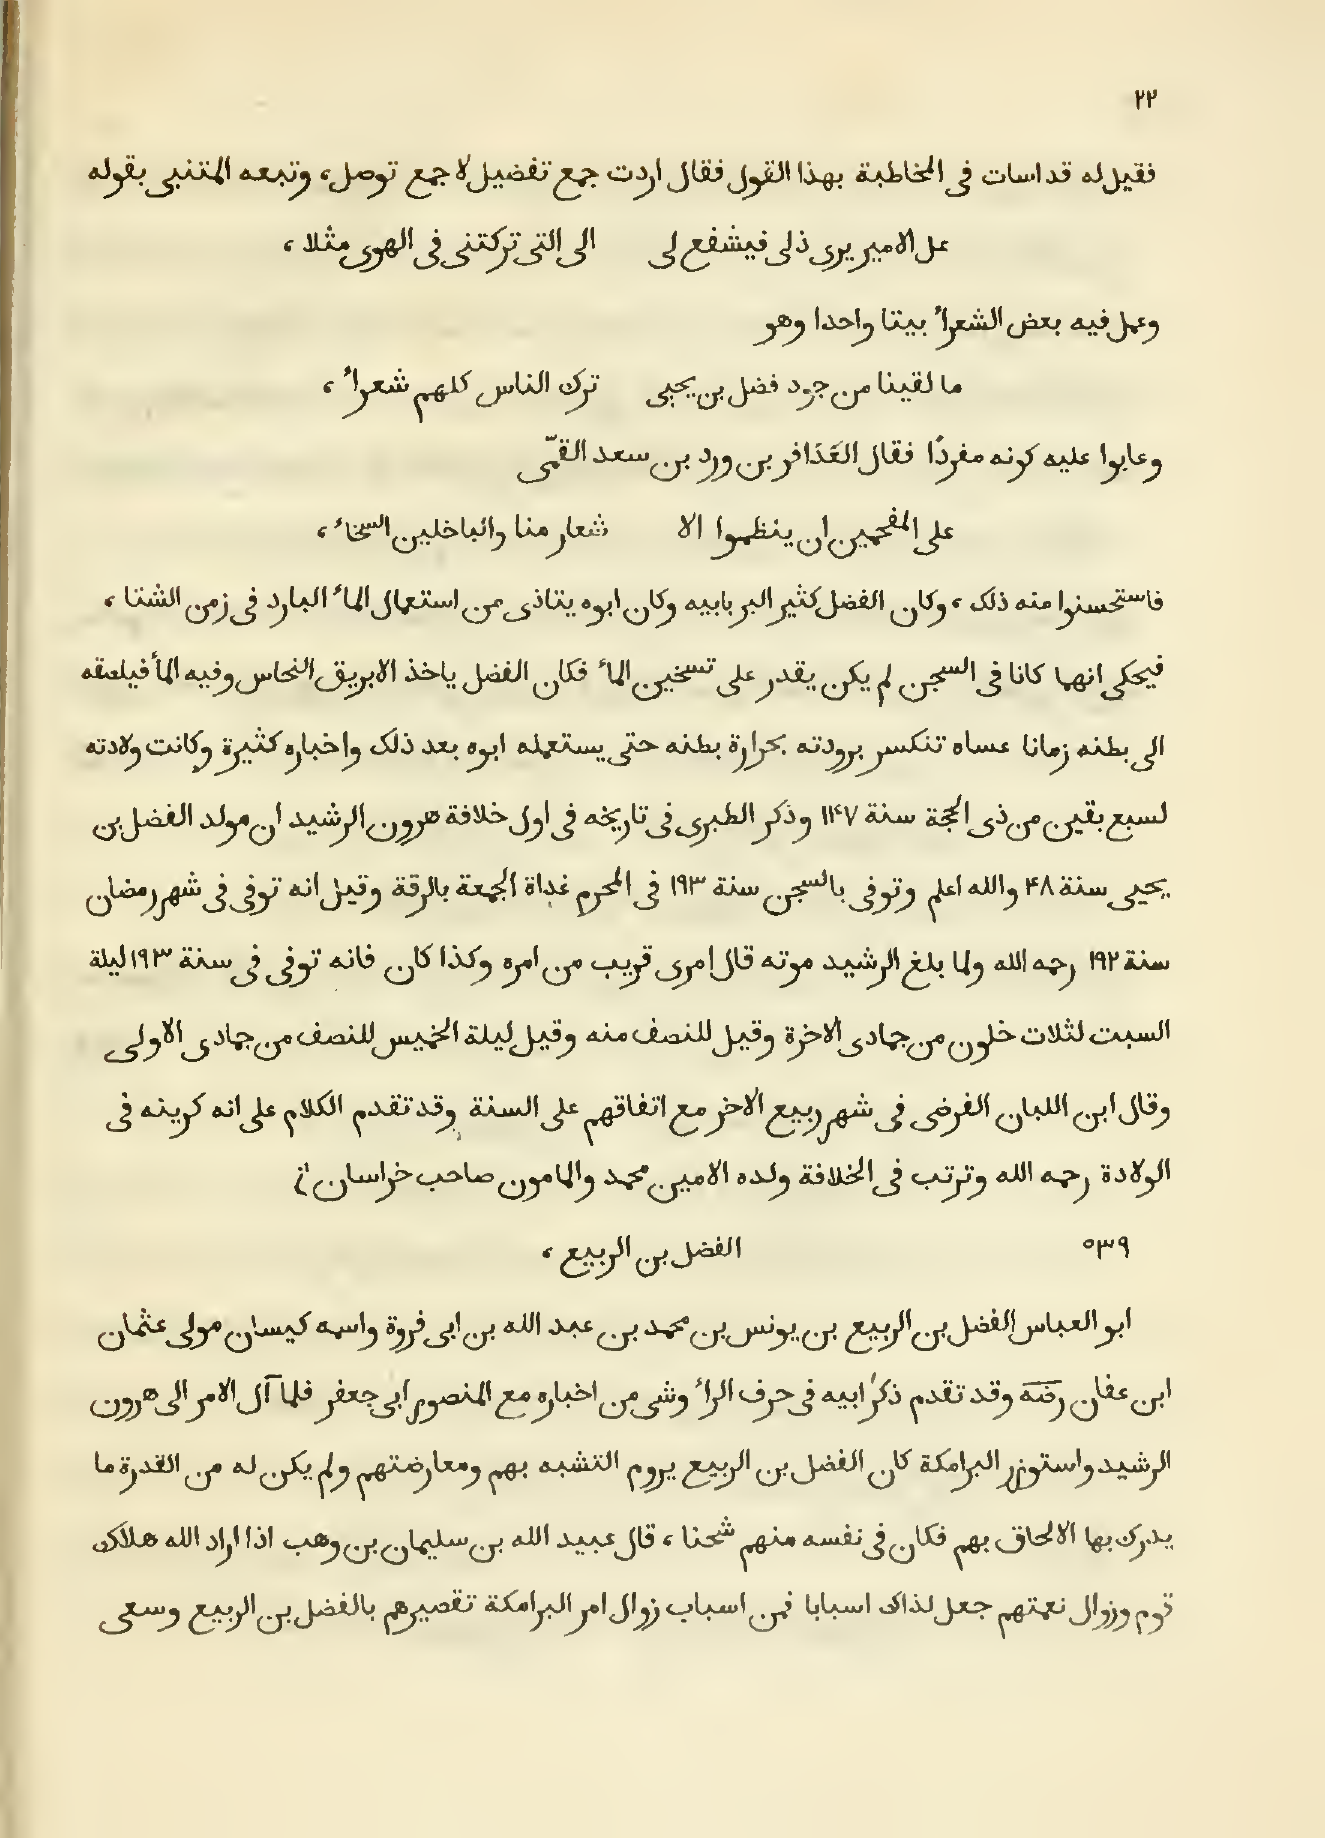 ٢٢
فقيل له قد اسات فى المخاطبة بهذا القول فقال اردت جمع تفضيل لا جمع توصل، وتبعه المتنبى بقوله
عل الامير يرى ذلى فيشفع لى الى التى تركتنى فى الهوى مثلا،
وعمل فيه بعض الشعراء بيتا واحدا وهو
ما لقينا من جود فضل بن يحيى ترك الناس كلهم شعراء،
وعابوا عليه كونه مفردًا فقال العَذَافر بن ورد بن سعد القمّى
على المفحمين ان ينظموا الا شعار منا والباخلين السخاء،
فاستحسنوا منه ذلك، وكان الفضل كثير البر بابيه وكان ابوه يتاذى من استعمال الماء البارد فى زمن الشتا،
فيحكى انهما كانا فى السجن لم يكن يقدر على تسخين الماء فكان الفضل ياخذ الابريق النحاس وفيه الماء فيلصقه
الى بطنه زمانا عساه تنكسر برودته بحرارة بطنه حتى يستعمله ابوه بعد ذلك واخباره كثيرة وكانت ولادته
لسبع بقين من ذى الحجة سنة ١٤٧ وذكر الطبرى فى تاريخه فى اول خلافة هرون الرشيد ان مولد الفضل بن
يحيى سنة ٤٨ والله اعلم وتوفى بالسجن سنة ١٩٣ فى المحرم غداة الجمعة بالرقة وقيل انه توفى فى شهر رمضان
سنة ١٩٢ رحمه الله ولما بلغ الرشيد موته قال امرى قريب من امره وكذا كان فانه توفى فى سنة ١٩٣ ليلة
السبت لثلاث خلون من جمادى الاخرة وقيل للنصف منه وقيل ليلة الخميس للنصف من جمادى الاولى
وقال ابن اللبان الفرضى فى شهر ربيع الاخر مع اتفاقهم على السنة وقد تقدم الكلام على انه كرينه فى
الولادة رحمه الله وترتب فى الخلافة ولده الامين محمد والمامون صاحب خراسان
٥٣٩ الفضل بن الربيع،
ابو العباس الفضل بن الربيع بن يونس بن محمد بن عبد الله بن ابى فروة واسمه كيسان مولى عثمان
ابن عفان رضه وقد تقدم ذكر ابيه فى حرف الراء وشى من اخباره مع المنصور ابى جعفر فلما آل الامر الى هرون
الرشيد واستوزر البرامكة كان الفضل بن الربيع يروم التشبه بهم ومعارضتهم ولم يكن له من القدرة ما
يدرك بها الالحاق بهم فكان فى نفسه منهم شحنا، قال عبيد الله بن سليمان بن وهب اذا اراد الله هلاك
قوم وزوال نعمتهم جعل لذاك اسبابا فمن اسباب زوال امر البرامكة تقصيرهم بالفضل بن الربيع وسعى